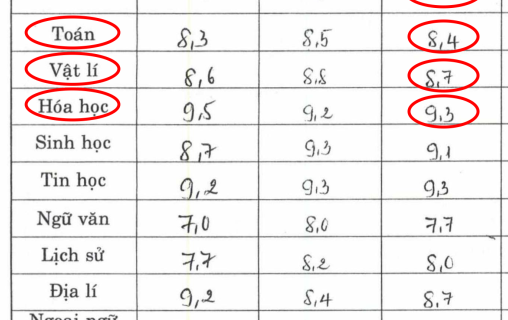 Toán 8,3 8,5 8,4
Vật lí 8,6 8,8 8,7
Hóa học 9,5 9,2 9,3
Sinh học 8,7 9,3 9,1
Tin học 9,2 9,3 9,3
Ngữ văn 7,0 8,0 7,7
Lịch sử 7,7 8,2 8,0
Địa lí 9,2 8,4 8,7
Ngoại ngữ